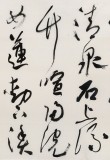 清泉石上流
竹喧归浣
女莲动下渔